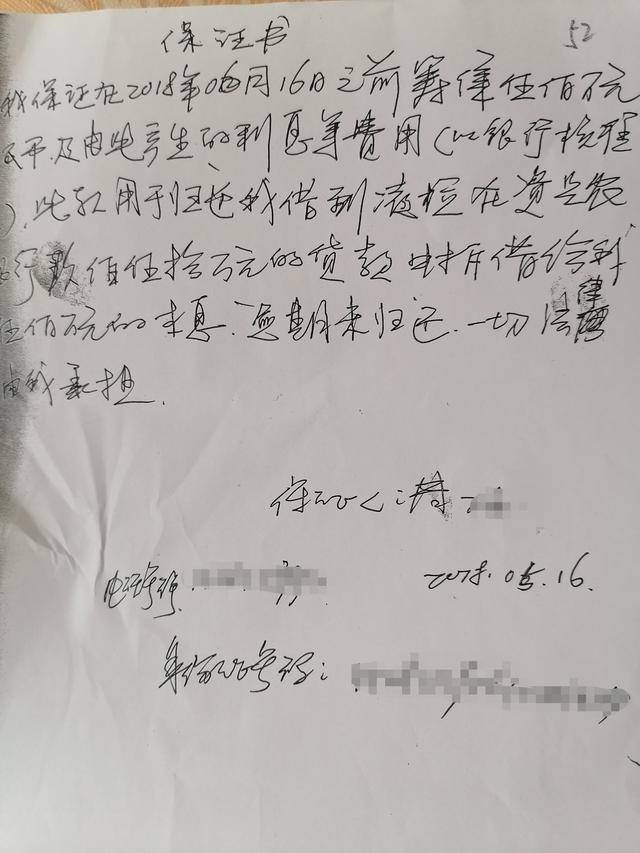 保证书
52
我保证在2018年06月16日之前筹集伍佰万元
及由此产生的利息等费用(以银行
).此款用于归还我借到 在资
佰伍拾万元的贷款 并借给
伍佰万元的 息.逾期未归还.一切法律
由我承担.
保证人:
电话号码
2018.05.16.
身份证号码: